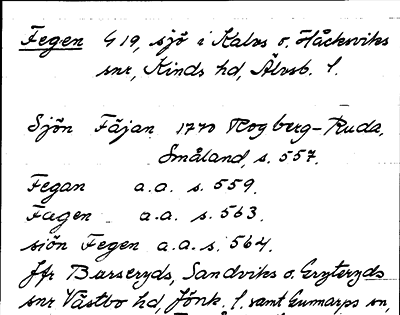 Fegen G 19, sjö i Kalvs o. Håcksviks
snr, Kinds hd, Älvsb. l.
Sjön Fäjan 1770 Rogberg-Ruda,
Småland, s. 557.
Fegan a.a. s. 559.
Fægen a.a. s. 563.
siön Fegen a.a. s. 564.
Jfr Burseryds, Sandviks o. Gryteryds
snr Västbo hd, Jönk. l. samt Gunnarps sn,